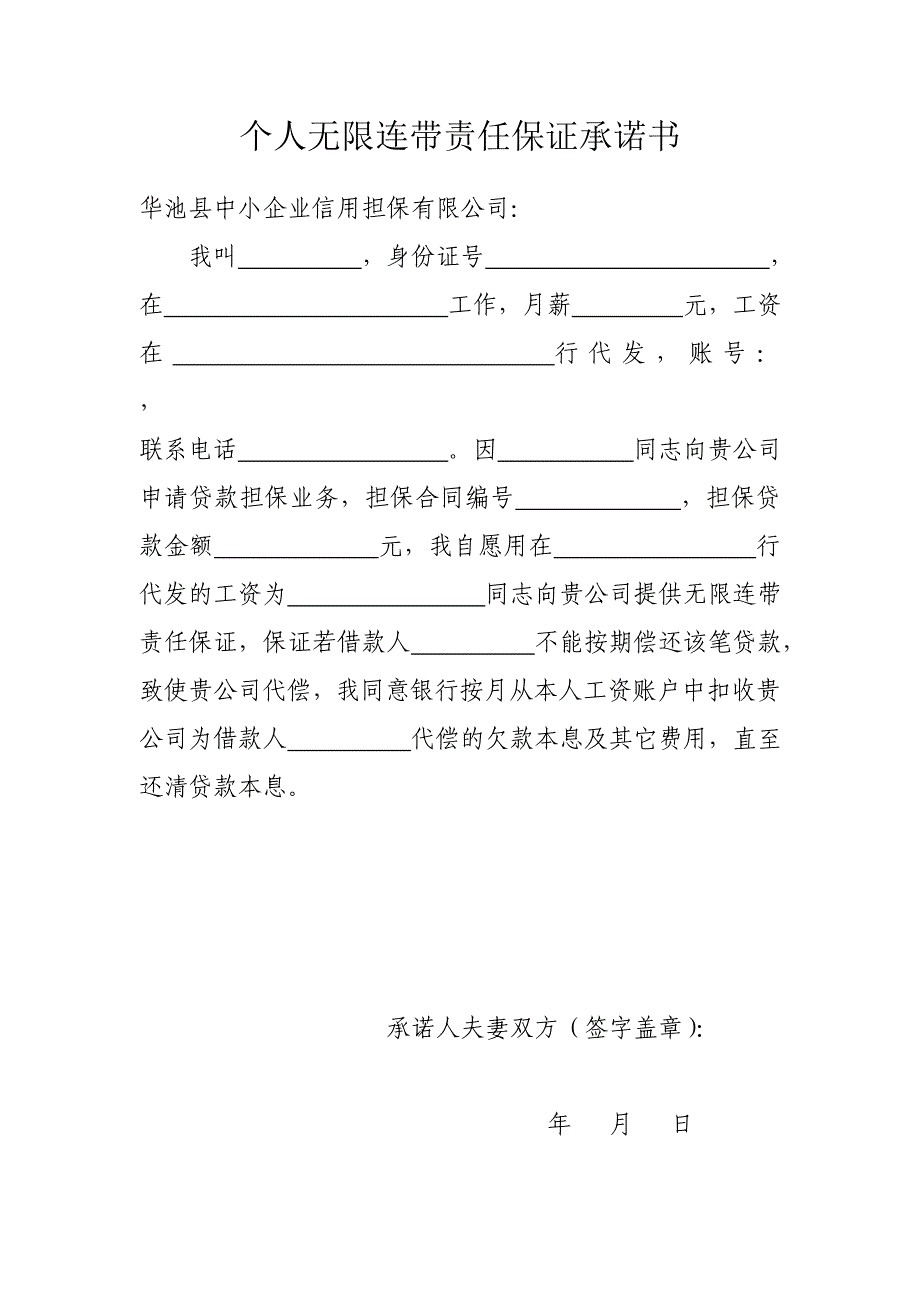 个人无限连带责任保证承诺书
华池县中小企业信用担保有限公司：
我叫__________，身份证号_______________________，
在_______________________工作，月薪_________元，工资
在_______________________________行代发，账号：
，
联系电话_________________。因___________同志向贵公司
申请贷款担保业务，担保合同编号_____________，担保贷
款金额_____________元，我自愿用在________________行
代发的工资为________________同志向贵公司提供无限连带
责任保证，保证若借款人__________不能按期偿还该笔贷款，
致使贵公司代偿，我同意银行按月从本人工资账户中扣收贵
公司为借款人__________代偿的欠款本息及其它费用，直至
还清贷款本息。
承诺人夫妻双方（签字盖章）：
年 月 日